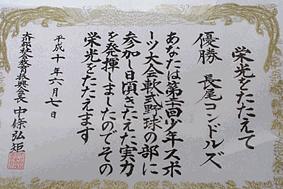 栄光をたたえて
優勝 長尾コンドルズ
あなたは第十四回少年スポ
ーツ大会軟式野球の部に
参加し日頃きたえた実力
を発揮しましたのでその
栄光をたたえます
平成十年六月七日
会長 中條弘矩